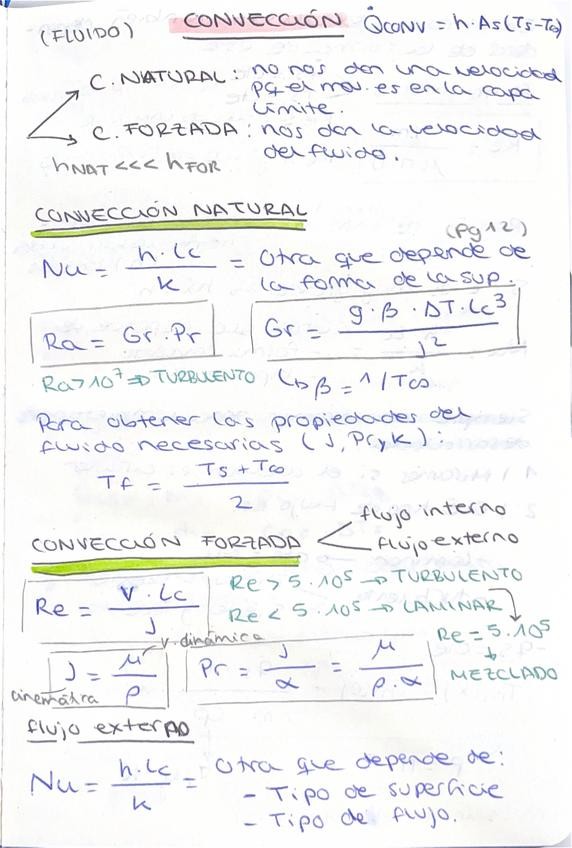 (FLUIDO) CONVECCIÓN Q̇CONV = h·As(Ts-T∞)
C. NATURAL: no nos dan una velocidad
pq el mov. es en la capa
límite.
C. FORZADA: nos dan la velocidad
del fluido.
hNAT <<< hFOR
CONVECCIÓN NATURAL
(Pg 12)
Nu = h·Lc / k = Otra que depende de
la forma de la sup.
Ra = Gr·Pr Gr = g·β·ΔT·Lc³ / ν²
Ra>10⁷ ⇒ TURBULENTO ↳ β = 1/T∞
Para obtener las propiedades del
fluido necesarias (ν, Pr y k):
Tf = Ts + T∞ / 2
flujo interno
CONVECCIÓN FORZADA
flujo externo
Re = V·Lc / ν Re > 5·10⁵ → TURBULENTO
Re < 5·10⁵ → LAMINAR
Re = 5·10⁵
↓
MEZCLADO
v. dinámica
ν = μ / ρ Pr = ν / α = μ / ρ·α
cinemática
flujo externo
Nu = h·Lc / k = Otra que depende de:
- Tipo de superficie
- Tipo de flujo.